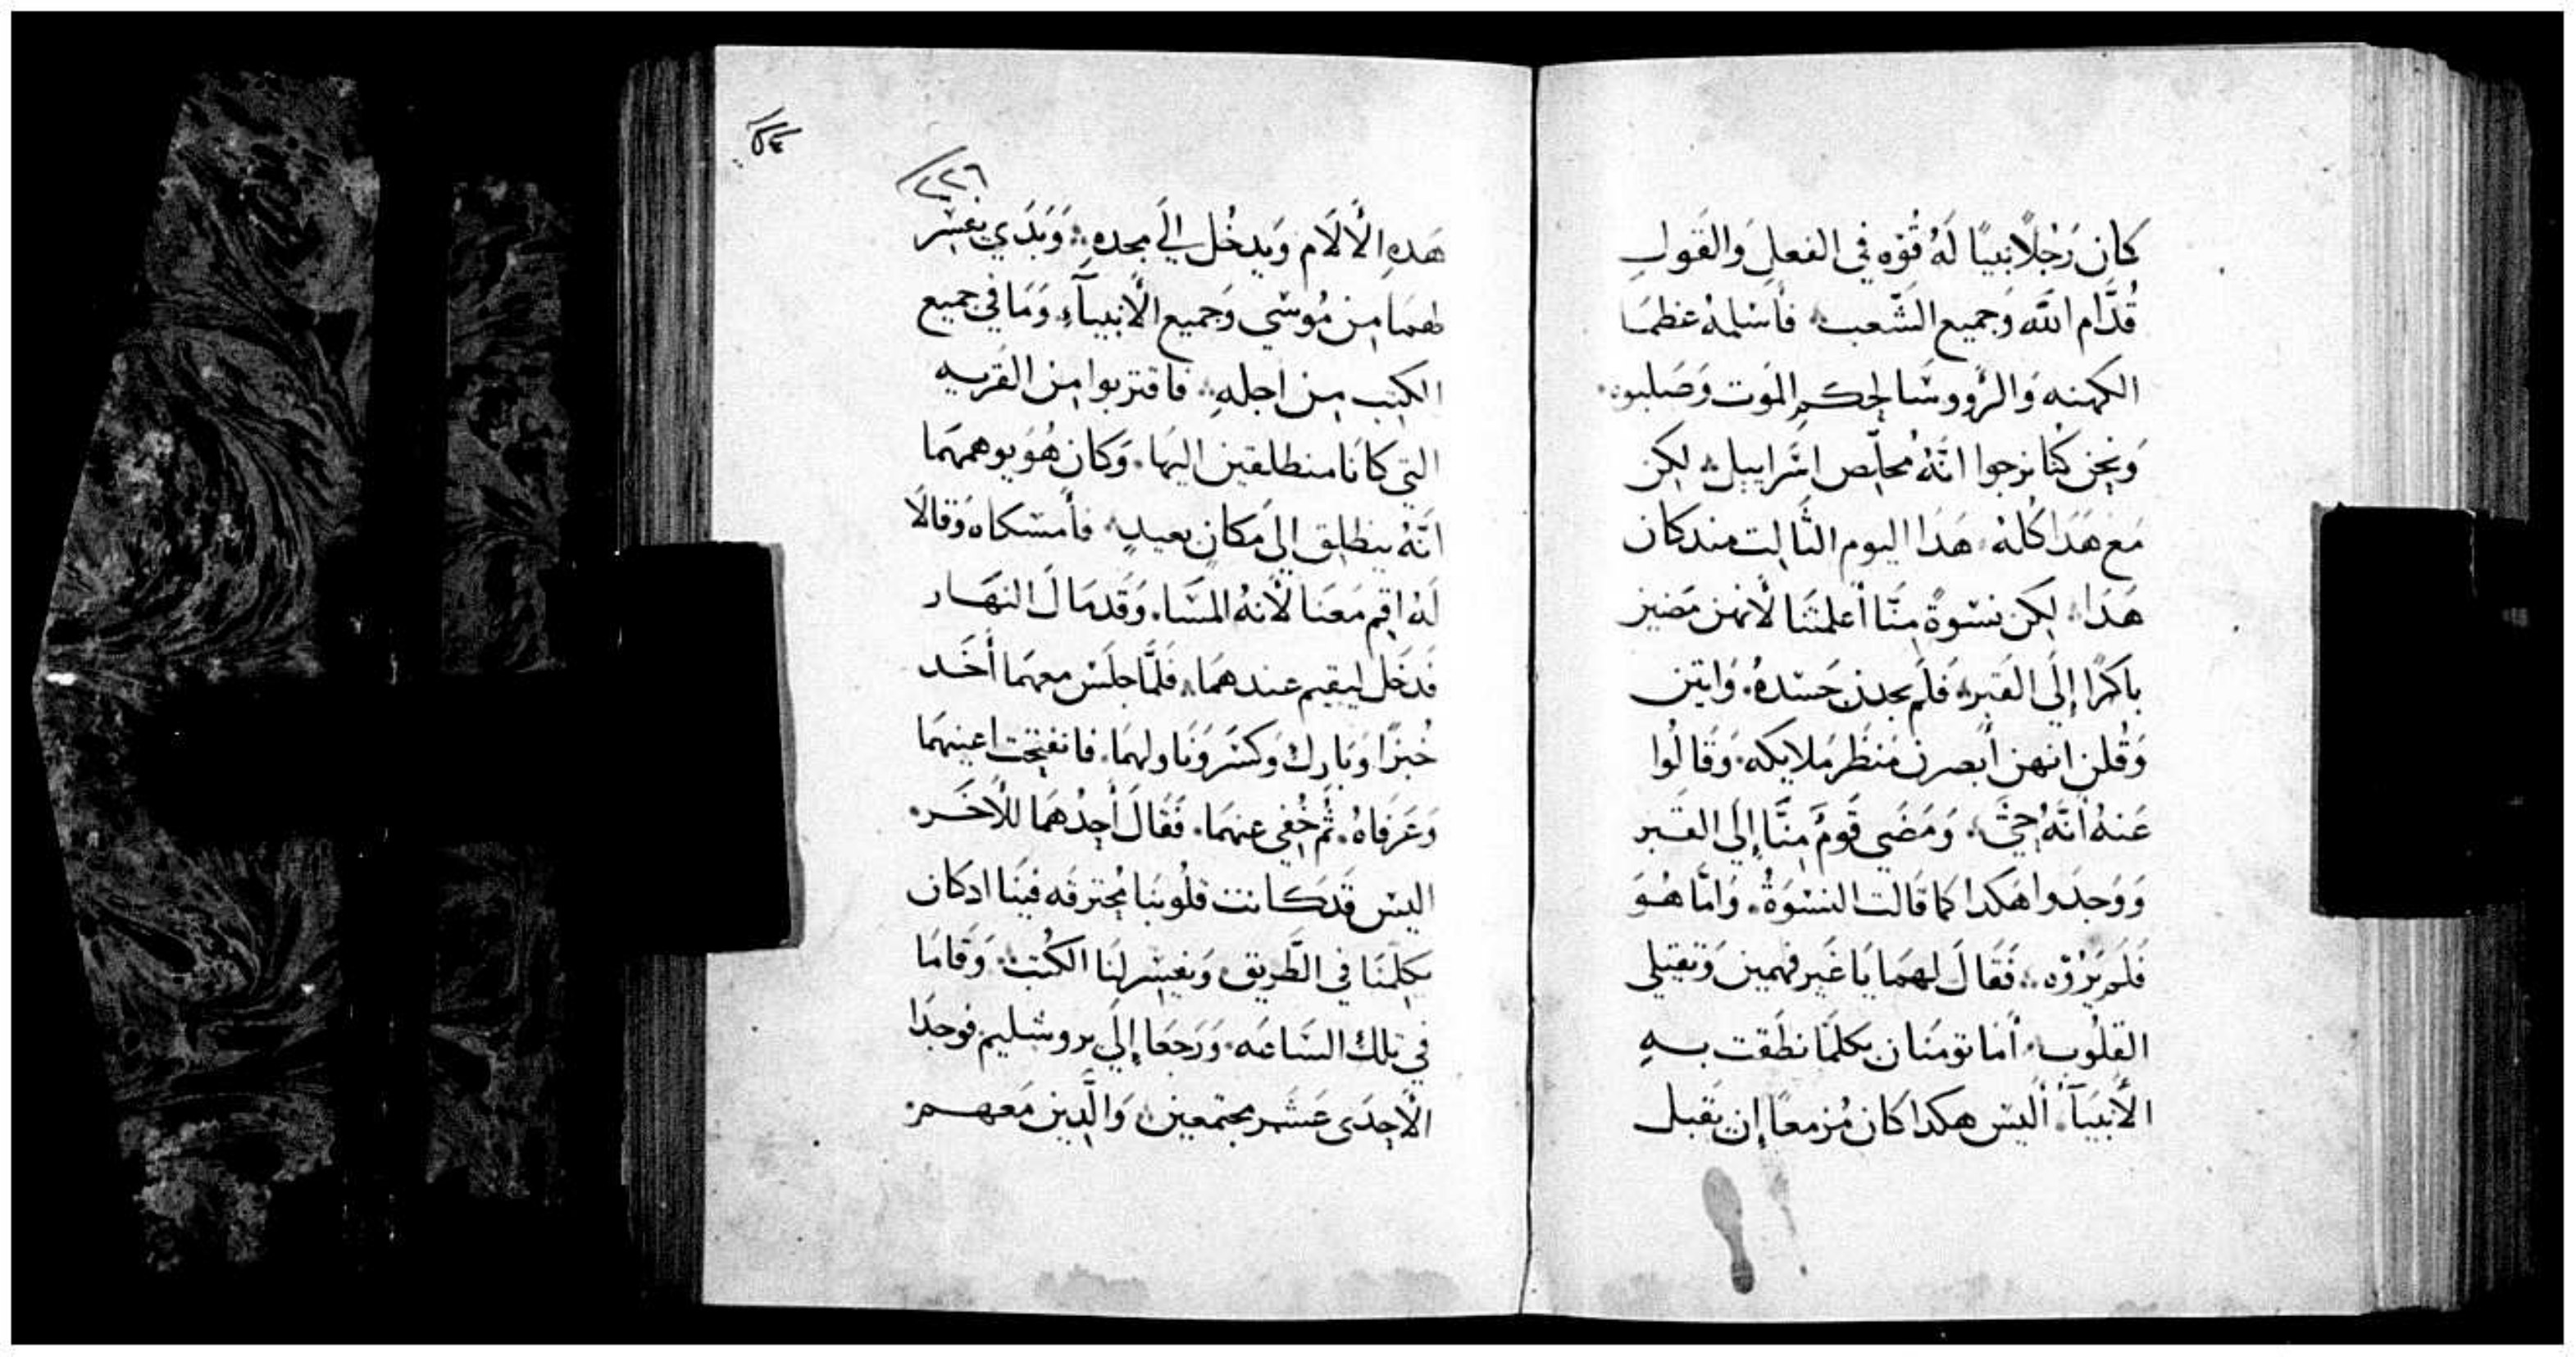 كان رَجُلًا نبيًا لَهُ قُوّه في الفعلِ وَالقَولِ
قُدَّام الله وَجميع الشَّعب ۞ فأسْلمهُ عظمَا
الكهنه وَالرُؤوسَا لحِكمِ الموَت وَصَلبوه ۞
وَنحِن كُنا نرجوا انَّهُ مخلّص اسَراييل ۞ لكِن
مَع هَدَا كُلهُ ۞ هَدَا اليوم الثَّالِت مندكان
هَدَا ۞ لكِن نسْوةً مِنّا أعلمتَنا لأنهن مَضين
باكرًا إلَى القَبر ۞ فَلَم يجدن جَسَدهُ ۞ وَاتين
وَقُلن انهن أبصرن مَنظَر مَلايكه ۞ وَقَالُوا
عَنهُ أنَّهُ حَيٌّ ۞ وَمَضَي قَومٌ مِنَّا إلَى القَبر
وَوَجدَوا هَكدا كما قَالَت النسْوَةُ ۞ وَامَّا هُوَ
فَلَم يَرُوّه ۞ فَقَالَ لهمَا يَا غَير فَهمين وَتقيلي
القلُوب ۞ أمَا تومنَان بكلمَا نطَقت بهِ
الأنبيَآءُ ۞ ألَيسَ هكدا كان مُزمعًا إن يَقبل
٢٥٤
٢٢٦
هَدهِ الألَام وَيدخُل إلَى مجدهِ ۞ وَبَدَي يفسّر
لهمَا مِن مُوسَي وَجَميع الأنبيَآءِ وَمَا في جميع
الكتب مِن اجلهِ ۞ فاقتربوا مِن القَريه
التي كانَا منطلقين اليهَا ۞ وَكان هُوَ يوهمهمَا
انَّهُ ينطلِق إلى مَكانٍ بعيدٍ ۞ فأمسَكاه وَقالَا
لَهُ اقِم مَعَنا لأنهُ المسَا ۞ وَقَد مَالَ النهَار
فَدخَل ليقيم عندهمَا ۞ فَلمَّا جلَسَ معهمَا أخَد
خُبزًا وَبَارك وَكسَر وَنَاولهمَا ۞ فانفتحَت اعينهمَا
وَعَرَفاهُ ۞ ثُم خُفِي عنهمَا ۞ فَقَالَ أحِدُهمَا للأخَر ۞
اليسَ قَدكانت قلُوبنا مُحترقَه فينَا ادكان
يكلِمنَا في الطَّريق ۞ وَيفسّر لنَا الكُتب ۞ وَقَامَا
في تلك السَّاعَه ۞ وَرَجعَا إلَى يروشليم فوجدَا
الأحِدَى عَشَر مجتمعين ۞ وَالَّدِين مَعهم ۞